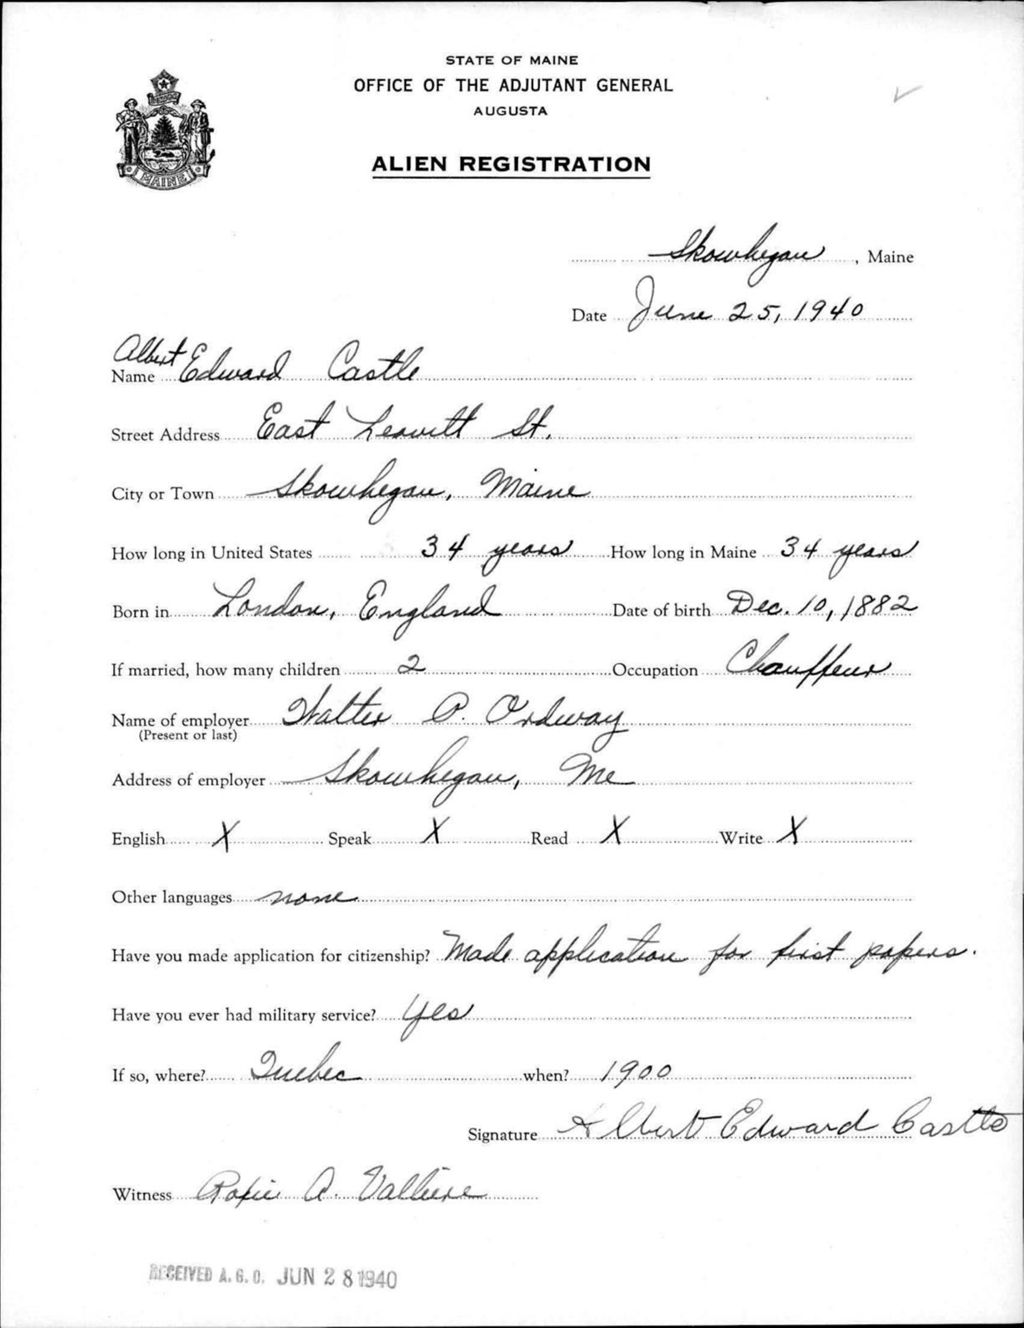 STATE OF MAINE
OFFICE OF THE ADJUTANT GENERAL
AUGUSTA
ALIEN REGISTRATION
MAINE
Skowhegan, Maine
Date June 25, 1940
Albert
Name Edward Castle
Street Address East Leavitt St.
City or Town Skowhegan, Maine
How long in United States 34 years How long in Maine 34 years
Born in London, England Date of birth Dec. 10, 1882
If married, how many children 2 Occupation Chauffeur
Name of employer Walter P. Ordway
(Present or last)
Address of employer Skowhegan, Me
English X Speak X Read X Write X
Other languages none
Have you made application for citizenship? Made application for first papers.
Have you ever had military service? Yes
If so, where? Quebec when? 1900
Signature Albert Edward Castle
Witness Roxie A. Valliere
RECEIVED A.G.O. JUN 28 1940